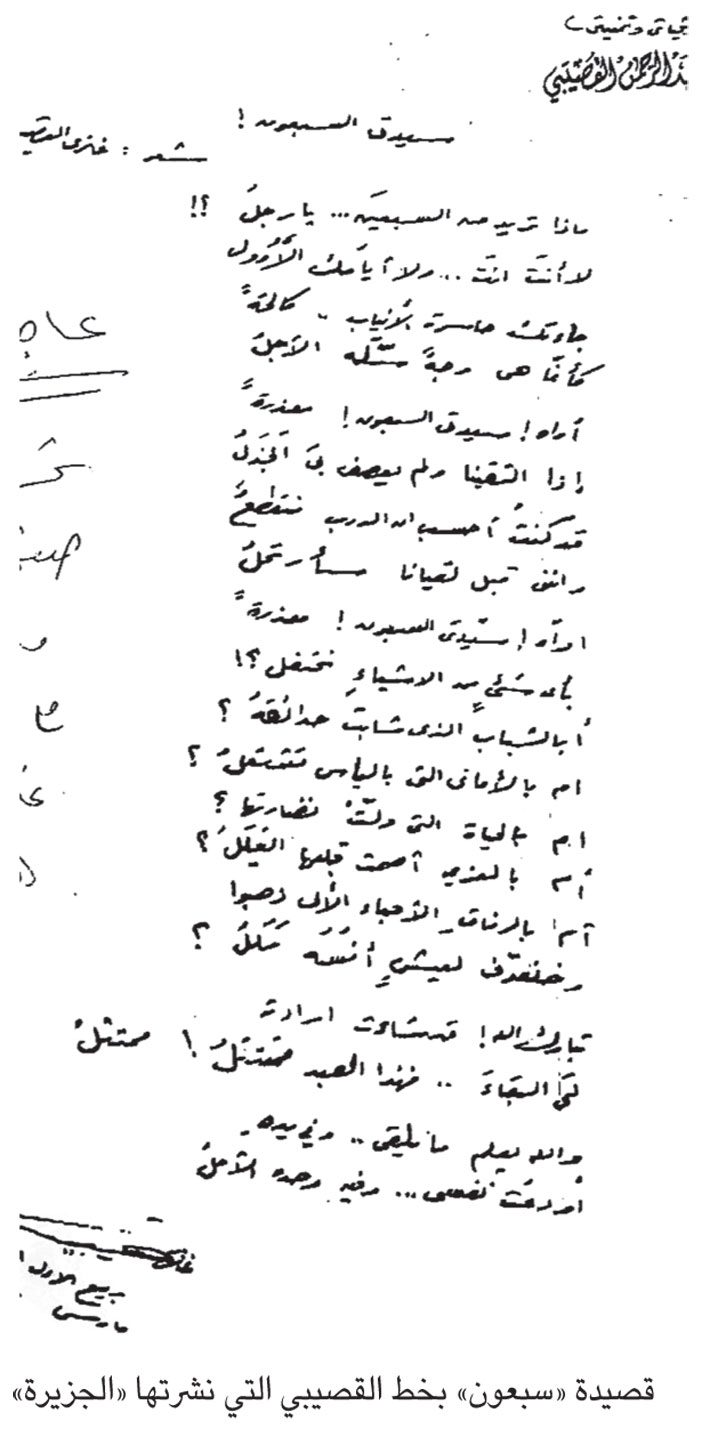 تحياتي وتمنياتي
عبدالرحمن القصيبي
سيدتي السبعون !
شعر : غازي القصيبي
ماذا تريد من السبعين ... يا رجلُ ؟!
لا أنتَ أنتَ .. ولا أيامك الأُوَلُ
جاءتك حاسرة الأنياب .. كالحةً
كأنّما هي وجهٌ سلَّه الأجلُ
أواه ! سيدتي السبعون ! معذرةً
إذا التقينا ولم يعصف بيَ الجَذَلُ
قد كنتُ أحسب ان الدرب منقطعٌ
وانني قبل لقيانا سأرتحلُ
اوّاه ! سيّدتي السبعون ! معذرةً
بأي شيءٍ من الاشياءِ نحتفل ؟!
أبالشباب الذي شابت حدائقهُ ؟
ام بالأماني التي باليأس تشتعلُ ؟
ام بالحياة التي ولّتْ نضارتها ؟
أم بالعزم أصمت قلبها العِلَلُ ؟
أم بالرفاق الأحباء الألى ذهبوا
وخلّفوني لعيشٍ أُنسُه مَلَلُ ؟
تبارك الله ! قد شاءت ارادته
ليَ البقاءَ .. فهذا العبد ممتثلُ ! ممتثلُ
والله يعلم ما يلقى .. وفي يده
أودعتُ نفسي ... وفيه وحده الأملُ
ربيع الاول
مارس
قصيدة «سبعون» بخط القصيبي التي نشرتها «الجزيرة»